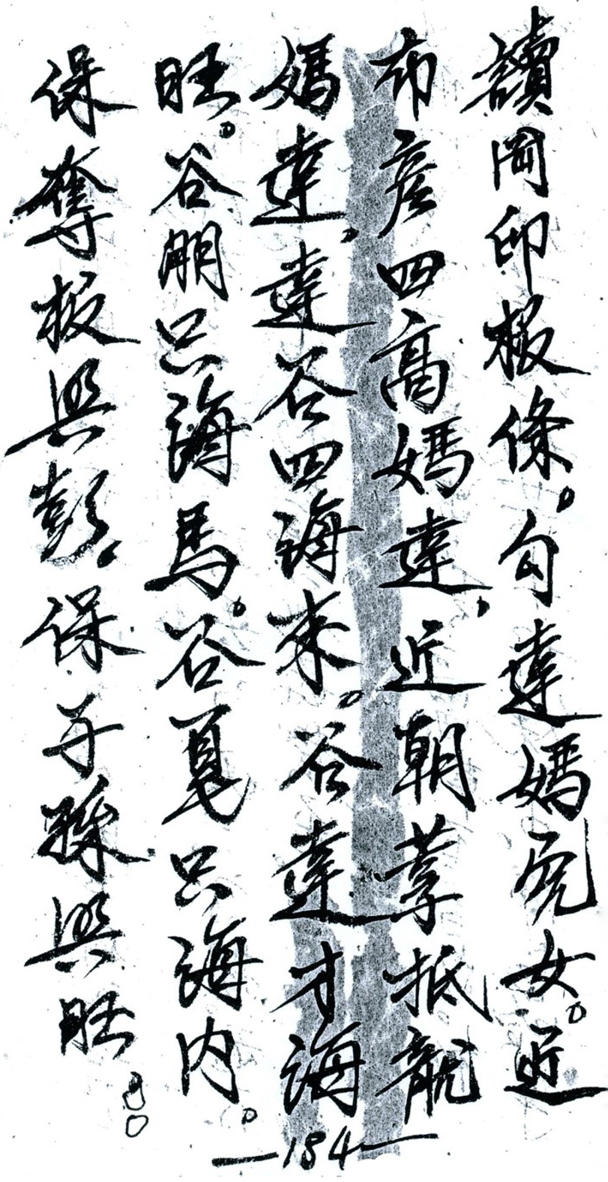 讀岡印板條。勾達媽宛女。近
布彦四高媽達，近朝荸抵龍
媽達，達谷四海来。谷達才海
旺。谷朋只海馬。谷夏只海内。
保奪板興彭。保子孫興旺
—184—